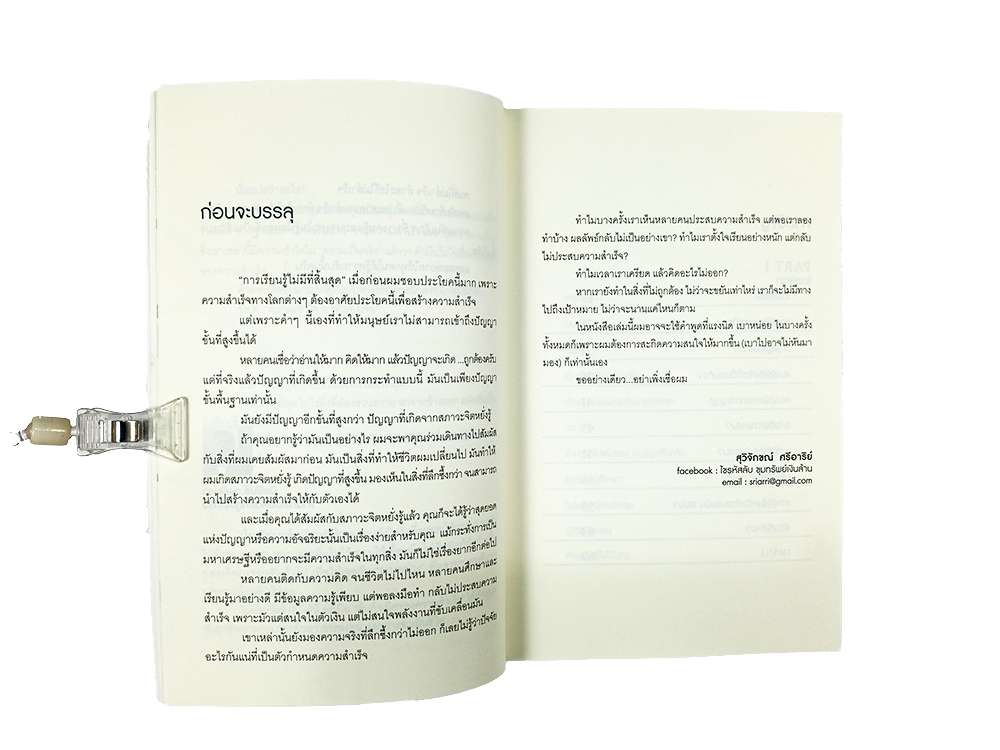 ก่อนจะบรรลุ
"การเรียนรู้ไม่มีที่สิ้นสุด" เมื่อก่อนผมชอบประโยคนี้มาก เพราะ
ความสำเร็จทางโลกต่างๆ ต้องอาศัยประโยคนี้เพื่อสร้างความสำเร็จ
แต่เพราะคำๆ นี้เองที่ทำให้มนุษย์เราไม่สามารถเข้าถึงปัญญา
ขั้นที่สูงขึ้นได้
หลายคนเชื่อว่าอ่านให้มาก คิดให้มาก แล้วปัญญาจะเกิด ...ถูกต้องครับ
แต่ที่จริงแล้วปัญญาที่เกิดขึ้น ด้วยการกระทำแบบนี้ มันเป็นเพียงปัญญา
ขั้นพื้นฐานเท่านั้น
มันยังมีปัญญาอีกขั้นที่สูงกว่า ปัญญาที่เกิดจากสภาวะจิตหยั่งรู้
ถ้าคุณอยากรู้ว่ามันเป็นอย่างไร ผมจะพาคุณร่วมเดินทางไปสัมผัส
กับสิ่งที่ผมเคยสัมผัสมาก่อน มันเป็นสิ่งที่ทำให้ชีวิตผมเปลี่ยนไป มันทำให้
ผมเกิดสภาวะจิตหยั่งรู้ เกิดปัญญาที่สูงขึ้น มองเห็นในสิ่งที่ลึกซึ้งกว่า จนสามารถ
นำไปสร้างความสำเร็จให้กับตัวเองได้
และเมื่อคุณได้สัมผัสกับสภาวะจิตหยั่งรู้แล้ว คุณก็จะได้รู้ว่าสุดยอด
แห่งปัญญาหรือความอัจฉริยะนั้นเป็นเรื่องง่ายสำหรับคุณ แม้กระทั่งการเป็น
มหาเศรษฐีหรืออยากจะมีความสำเร็จในทุกสิ่ง มันก็ไม่ใช่เรื่องยากอีกต่อไป
หลายคนติดกับความคิด จนชีวิตไม่ไปไหน หลายคนศึกษาและ
เรียนรู้มาอย่างดี มีข้อมูลความรู้เพียบ แต่พอลงมือทำ กลับไม่ประสบความ
สำเร็จ เพราะมัวแต่สนใจในตัวเงิน แต่ไม่สนใจพลังงานที่ขับเคลื่อนมัน
เขาเหล่านั้นยังมองความจริงที่ลึกซึ้งกว่าไม่ออก ก็เลยไม่รู้ว่าปัจจัย
อะไรกันแน่ที่เป็นตัวกำหนดความสำเร็จ
ทำไมบางครั้งเราเห็นหลายคนประสบความสำเร็จ แต่พอเราลอง
ทำบ้าง ผลลัพธ์กลับไม่เป็นอย่างเขา? ทำไมเราตั้งใจเรียนอย่างหนัก แต่กลับ
ไม่ประสบความสำเร็จ?
ทำไมเวลาเราเครียด แล้วคิดอะไรไม่ออก?
หากเรายังทำในสิ่งที่ไม่ถูกต้อง ไม่ว่าจะขยันเท่าไหร่ เราก็จะไม่มีทาง
ไปถึงเป้าหมาย ไม่ว่าจะนานแค่ไหนก็ตาม
ในหนังสือเล่มนี้ผมอาจจะใช้คำพูดที่แรงนิด เบาหน่อย ในบางครั้ง
ทั้งหมดก็เพราะผมต้องการสะกิดความสนใจให้มากขึ้น (เบาไปอาจไม่หันมา
มอง) ก็เท่านั้นเอง
ขออย่างเดียว...อย่าเพิ่งเชื่อผม
สุวิจักขณ์ ศรีอาริย์
facebook : ไขรหัสลับ ขุมทรัพย์เงินล้าน
email : sriarri@gmail.com